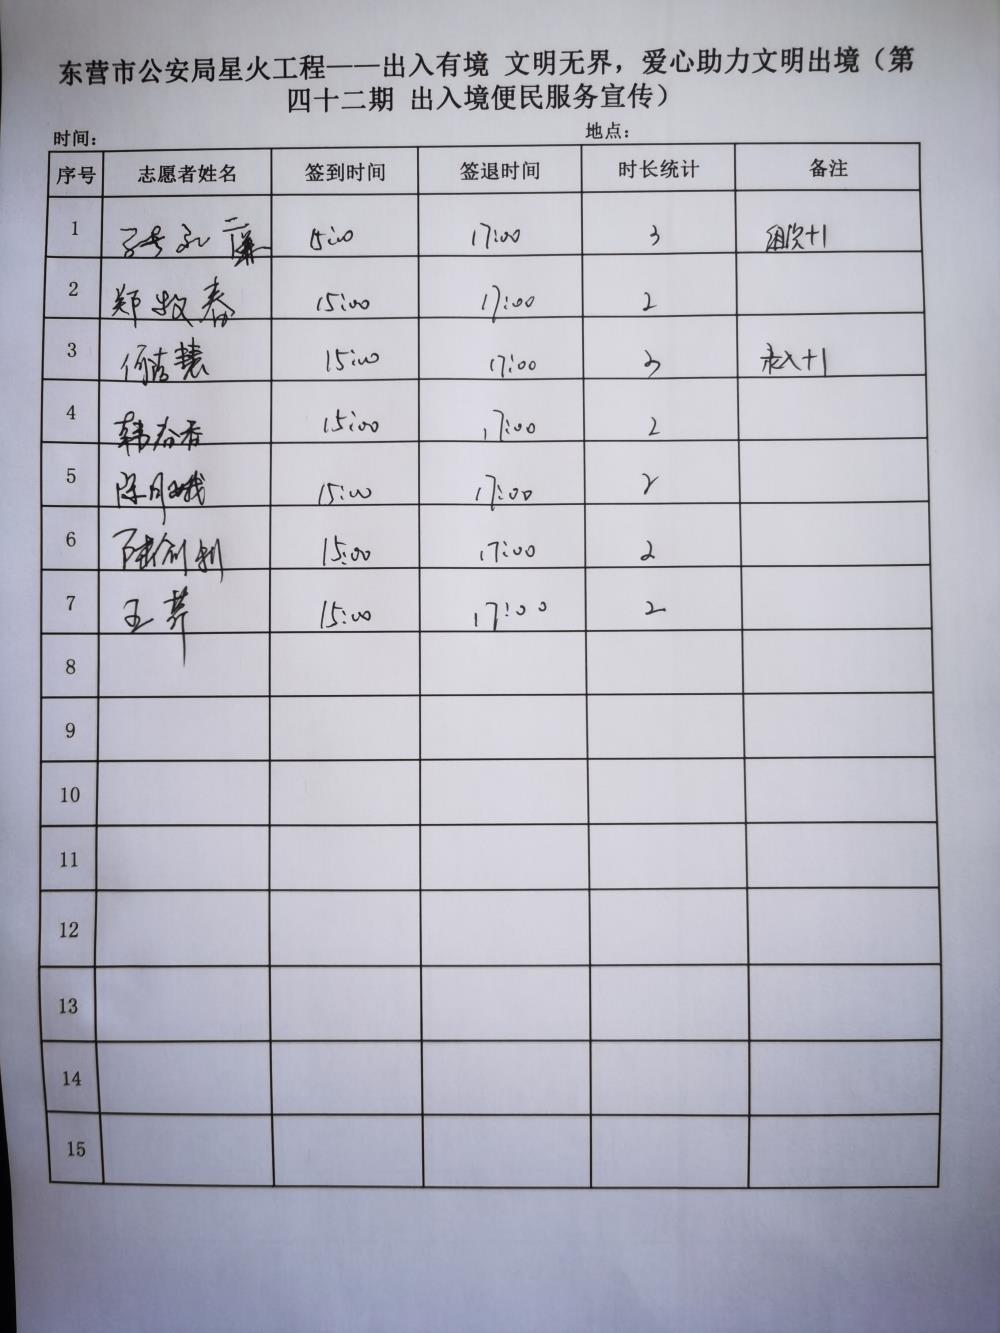 东营市公安局星火工程——出入有境 文明无界，爱心助力文明出境（第
四十二期 出入境便民服务宣传）
时间： 地点：
序号 志愿者姓名 签到时间 签退时间 时长统计 备注
1 15:00 17:00 3 +1
2 郑牧春 15:00 17:00 2
3 何洁慧 15:00 17:00 3 录入+1
4 韩春香 15:00 17:00 2
5 陈月娥 15:00 17:00 2
6 陆剑钊 15:00 17:00 2
7 王萍 15:00 17:00 2
8
9
10
11
12
13
14
15